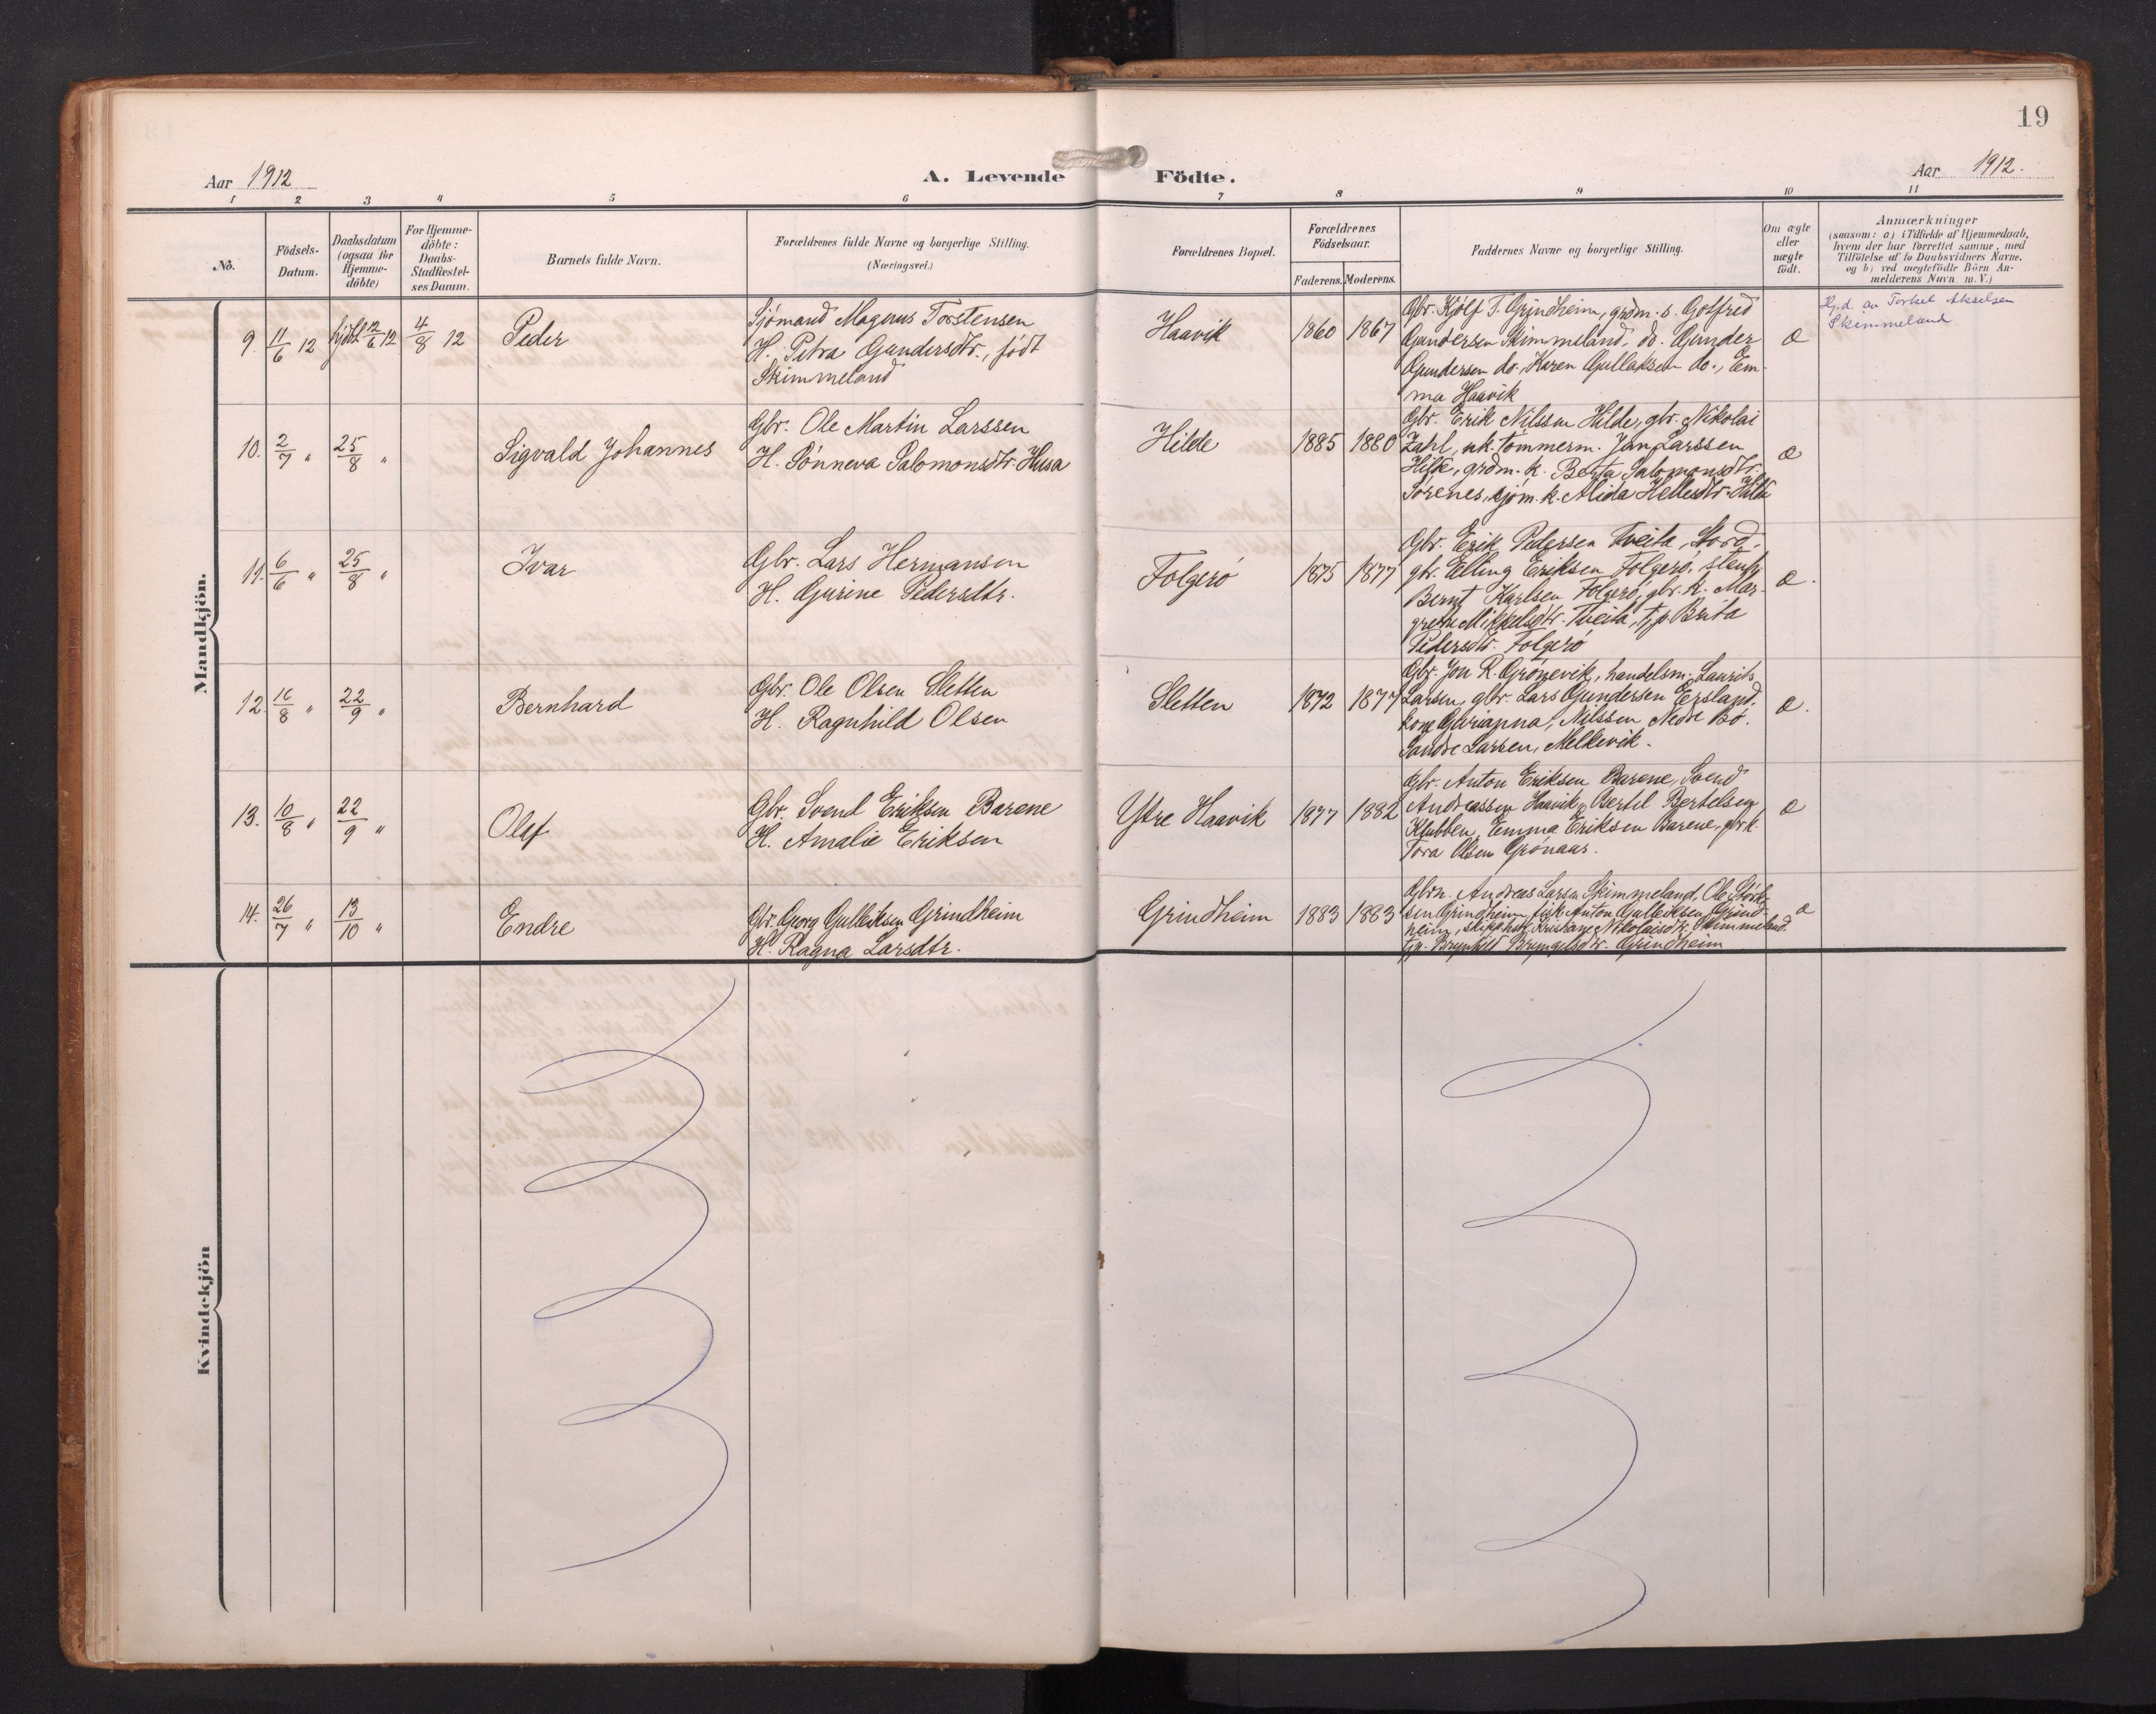 19
Aar 1912
A. Levende Födte.
Aar 1912.
1 2 3 4 5 6 7 8 9 10 11
No.
Födsels-
Datum.
Daabsdatum
(ogsaa for
Hjemme-
döbte)
For Hjemme-
döbte:
Daabs-
Stadfæstel-
ses Datum.
Barnets fulde Navn.
Forældrenes fulde Navne og borgerlige Stilling.
(Næringsvei.)
Forældrenes Bopæl.
Forældrenes
Födselsaar.
Faderens. Moderens.
Faddernes Navne og borgerlige Stilling.
Om ægte
eller
uægte
födt.
Anmærkninger
(saasom: a) i Tilfælde af Hjemmedaab,
hvem der har forrettet samme, med
Tilföielse af to Daabsvidners Navne.
og b) ved uægtefödte Börn An-
melderens Navn m.V.)
Mandkjön.
9. 11/6 12 hjdbt 12/6 12 4/8 12
Peder
Sjömand Magnus Torstensen
H. Petra Gundersdtr., födt
Skimmeland
Haavik
1860 1867
Gbr. Kjölf T. Grindheim, grdm. s. Gotfred
Gundersen Skimmeland, do. Gunder
Gundersen do., Karen Gullaksen do., Em-
ma Haavik
æ
Hj.d. av Torkel Akselsen
Skimmeland
10. 2/7 25/8 "
Sigvald Johannes
Gbr. Ole Martin Larssen
H. Sönneva Salomonsdtr. Husa
Hilde
1885 1880
Gbr. Erik Nilssen Hilde, gbr. Nikolai
Zahl, uk. tömmerm. Jan Larssen
Hilde, grdm. k. Berta Salomonsdtr.
Sörenes, sjöm. k. Alida Hellesdtr. Hilde
æ
11. 6/6 " 25/8 "
Ivar
Gbr. Lars Hermansen
H. Gurine Pedersdtr.
Folgerö
1875 1877
Gbr. Erik Pedersen Tveita, Stord,
gbr. Elling Eriksen Folgerö,
Bernt Karlsen Folgerö, gbr. k. Mar-
grete Mikkelsdtr. Tveita, tjp Brita
Pedersdtr. Folgerö
æ.
12. 16/8 " 22/9 "
Bernhard
Gbr. Ole Olsen Sletten
H. Ragnhild Olsen
Sletten
1872 1877
Gbr. Jon R. Grönevik, handelsm. Laurits
Larsen, gbr. Lars Gundersen Ersland,
kone Nilssen, Nedre Bö.
Sandre Larsen, Melkevik.
æ.
13. 10/8 " 22/9 "
Olaf
Gbr. Svend Eriksen Barene
H. Amalie Eriksen
Ytre Haavik
1877 1882
Gbr. Anton Eriksen Barene, Svend
Andreassen Haavik, Bertil Bertelsen
Klubben, Emma Eriksen Barene, gbr k.
Tora Olsen Grönaas.
æ
14. 26/7 " 13/10 "
Endre
Gbr. Georg Gulleiksen Grindheim
H. Ragna Larsdtr.
Grindheim
1883 1883
Gbrn. Andreas Larsen Skimmeland, Ole
sen Grindheim, fisk. Anton Gulleiksen Grind-
heim, Kristiane Nikolaisdtr. Skimmeland.
tjp. Brynhild Bryngelsdtr. Grindheim
æ
Kvindekjön